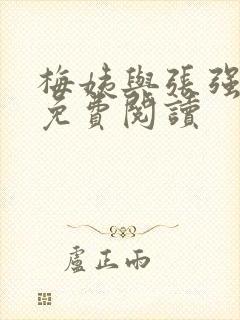 梅姨與張强
免費閱讀
盧正雨